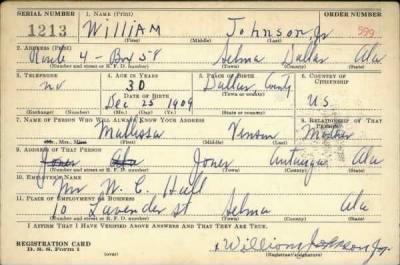 SERIAL NUMBER 1. NAME (Print) ORDER NUMBER
1213 William Johnson, Jr 599
(First) (Middle) (Last)
2. ADDRESS (Print)
Route 4 - Box 58 Selma Dallas Ala
(Number and street or R. F. D. number) (Town) (County) (State)
3. TELEPHONE 4. AGE IN YEARS 5. PLACE OF BIRTH 6. COUNTRY OF CITIZENSHIP
no 30 Dallas County
DATE OF BIRTH (Town or county)
Dec 25 1909 U.S.
(Exchange) (Number) (Mo.) (Day) (Yr.) (State or country)
7. NAME OF PERSON WHO WILL ALWAYS KNOW YOUR ADDRESS 8. RELATIONSHIP OF THAT PERSON
Mallissa Vinson Mother
Mr., Mrs., Miss (First) (Middle) (Last)
9. ADDRESS OF THAT PERSON
Jones Ala Jones Autauga Ala
(Number and street or R. F. D. number) (Town) (County) (State)
10. EMPLOYER'S NAME
Mr W. C. Hall
11. PLACE OF EMPLOYMENT OR BUSINESS
10 Lavender st Selma Ala
(Number and street or R. F. D. number) (Town) (County) (State)
I AFFIRM THAT I HAVE VERIFIED ABOVE ANSWERS AND THAT THEY ARE TRUE.
REGISTRATION CARD x William Johnson Jr.
D. S. S. Form 1 (Registrant's signature)